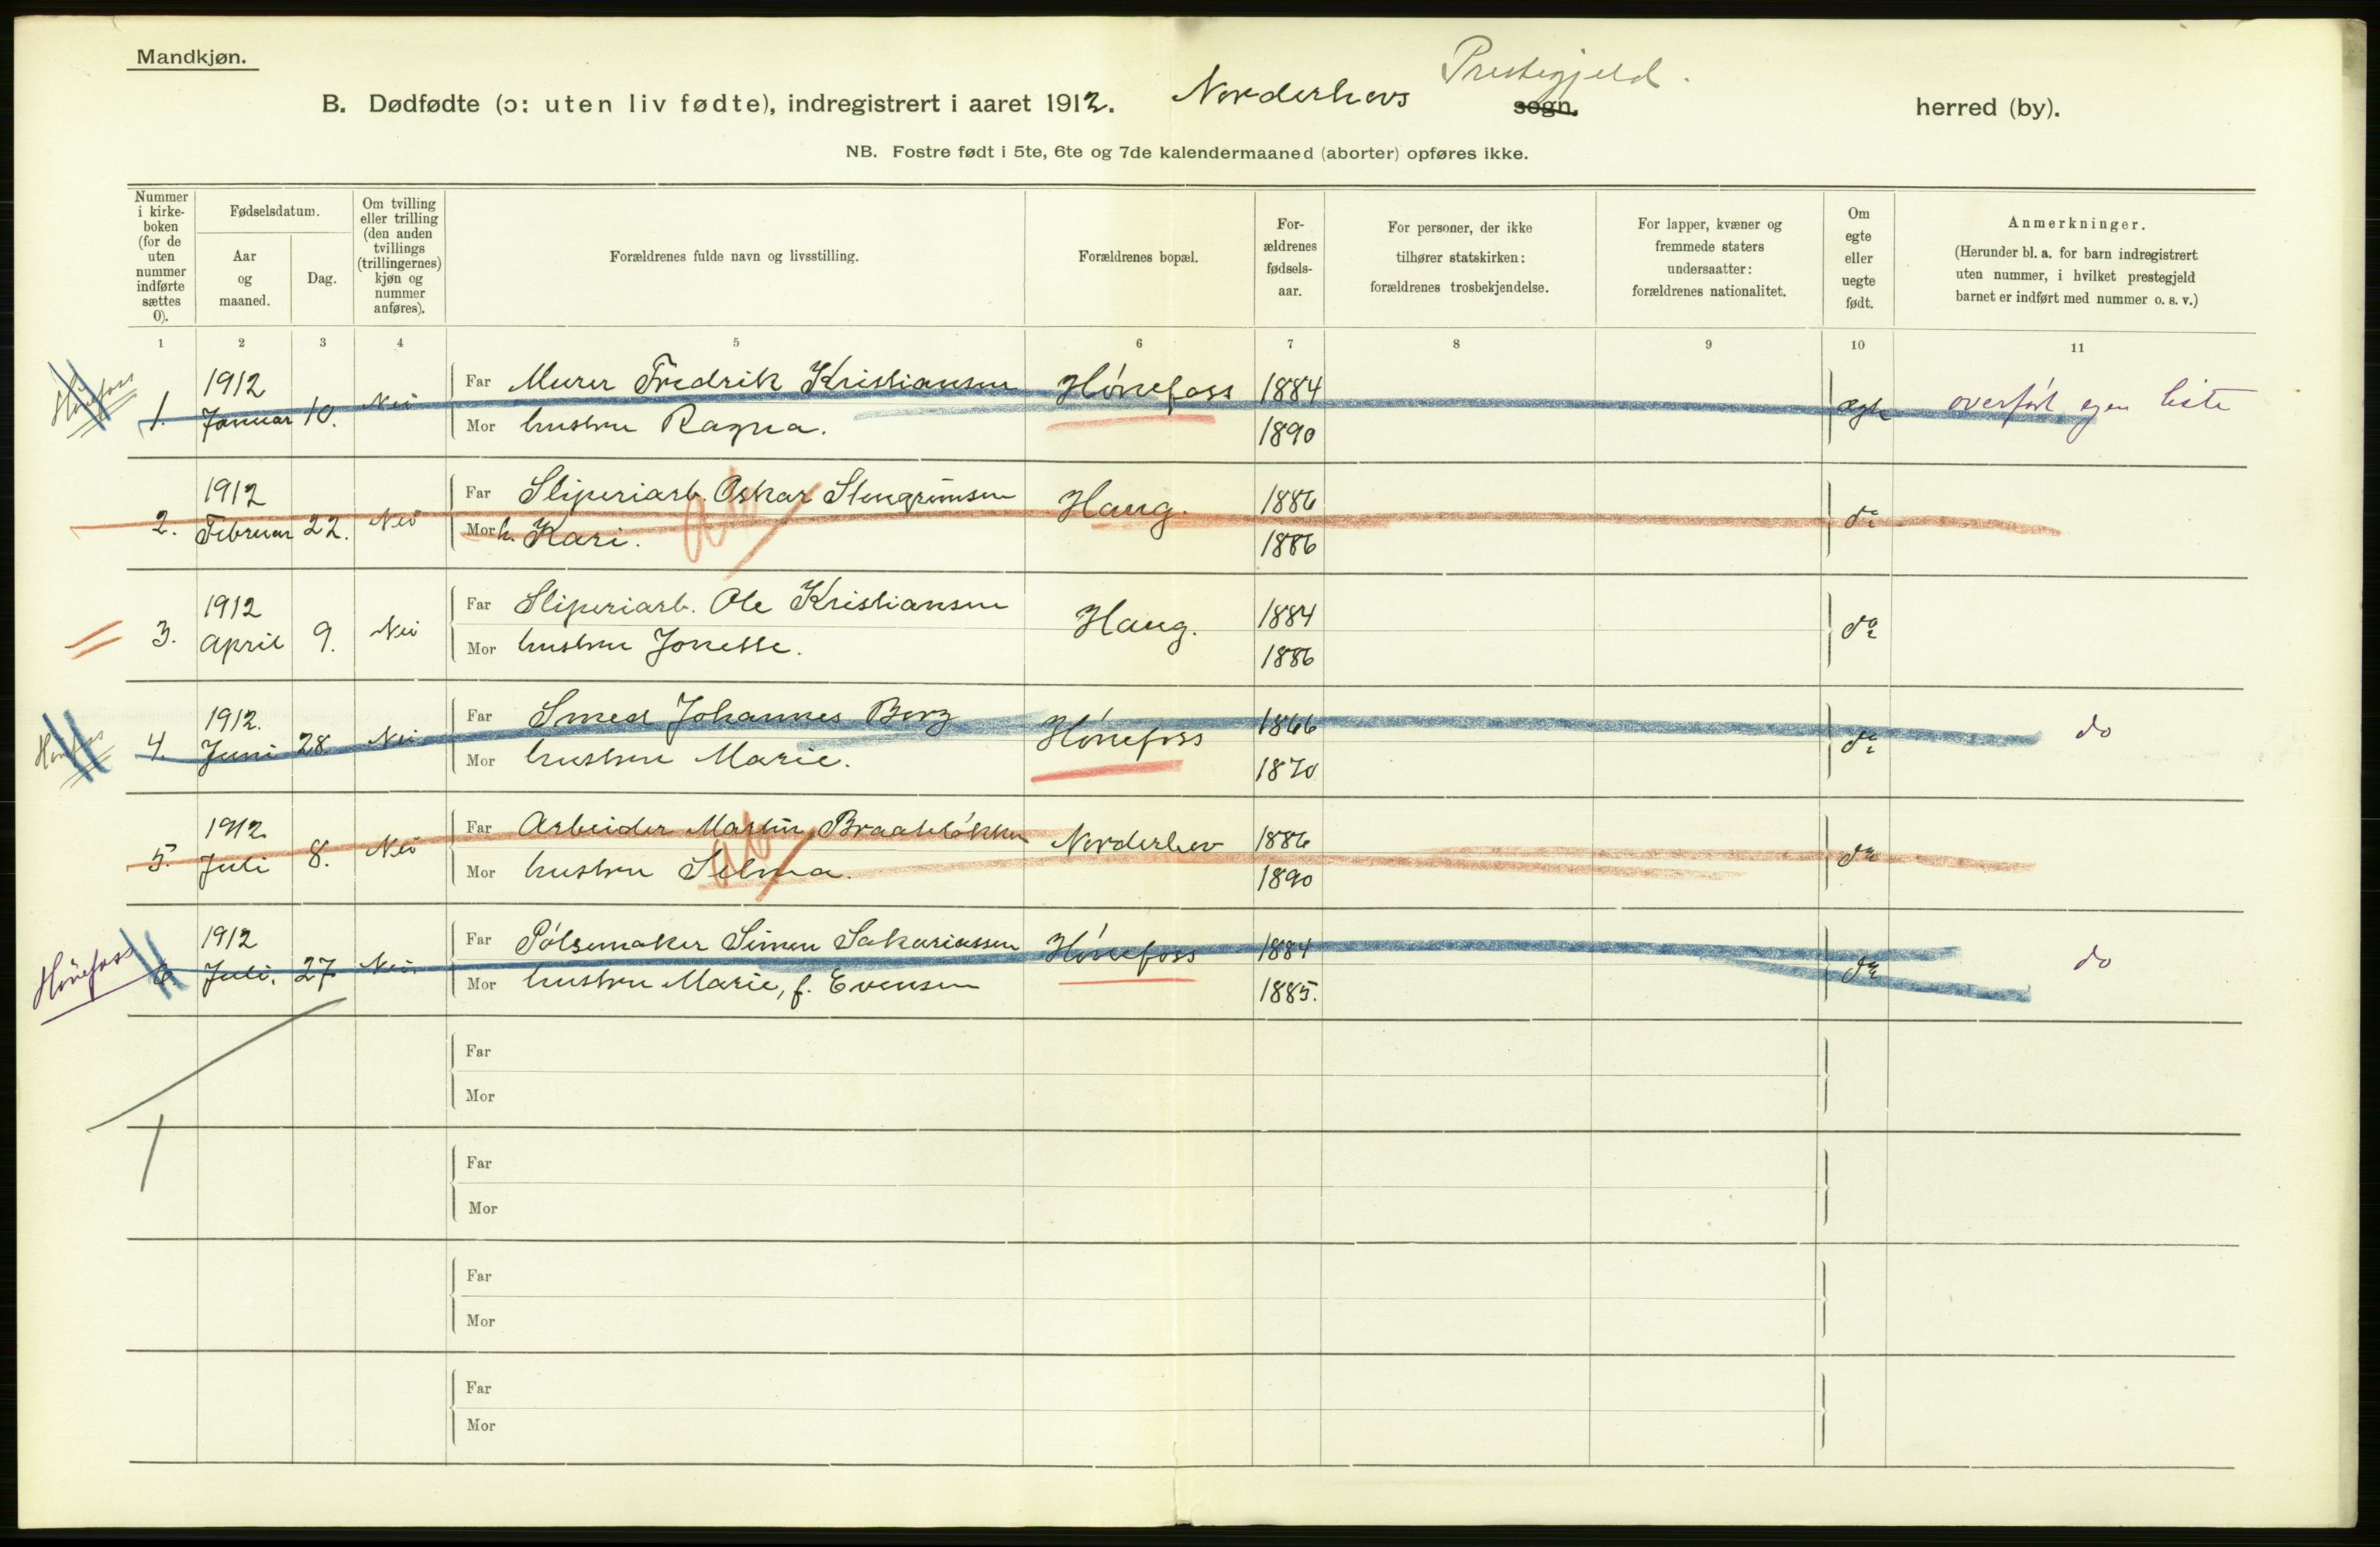 Mandkjøn.
Prestegjeld.
B. Dødfødte (ɔ: uten liv fødte), indregistrert i aaret 1912. Norderhovs sogn. herred (by).
NB. Fostre født i 5te, 6te og 7de kalendermaaned (aborter) opføres ikke.
Nummer i kirke-boken (for de uten nummer indførte sættes 0).
Fødselsdatum.
Aar og maaned.
Dag.
Om tvilling eller trilling (den anden tvillings (trillingernes) kjøn og nummer anføres).
Forældrenes fulde navn og livsstilling.
Forældrenes bopæl.
For-ældrenes fødsels-aar.
For personer, der ikke tilhører statskirken: forældrenes trosbekjendelse.
For lapper, kvæner og fremmede staters undersaatter: forældrenes nationalitet.
Om egte eller uegte født.
Anmerkninger.
(Herunder bl. a. for barn indregistrert uten nummer, i hvilket prestegjeld barnet er indført med nummer o. s. v.)
1 2 3 4 5 6 7 8 9 10 11
Hönefoss 1. 1912 Januar 10. Nei Far Murer Fredrik Kristiansen Hönefoss 1884 ægte overført egen liste
Mor hustru Ragna. 1890
2. 1912 Februar 22. Nei Far Sliperiarb. Oskar Stengrimsen Haug. 1886 do
Mor h. Kari. 1886
3. 1912 April 9. Nei Far Sliperiarb. Ole Kristiansen Haug. 1884 do
Mor hustru Jonette. 1886
4. 1912. Juni 28 Nei Far Smed Johannes Berg Hönefoss 1866 do do
Mor hustru Marie. 1870
5. 1912 Juli 8. Nei Far Arbeider Martin Braateløkken Norderhov 1886 do
Mor hustru Selma. 1890
Hönefoss 6 1912 Juli. 27 Nei. Far Pölsemaker Simen Sakariassen Hönefoss 1884 do do
Mor hustru Marie, f. Evensen 1885.
Far
Mor
Far
Mor
Far
Mor
Far
Mor